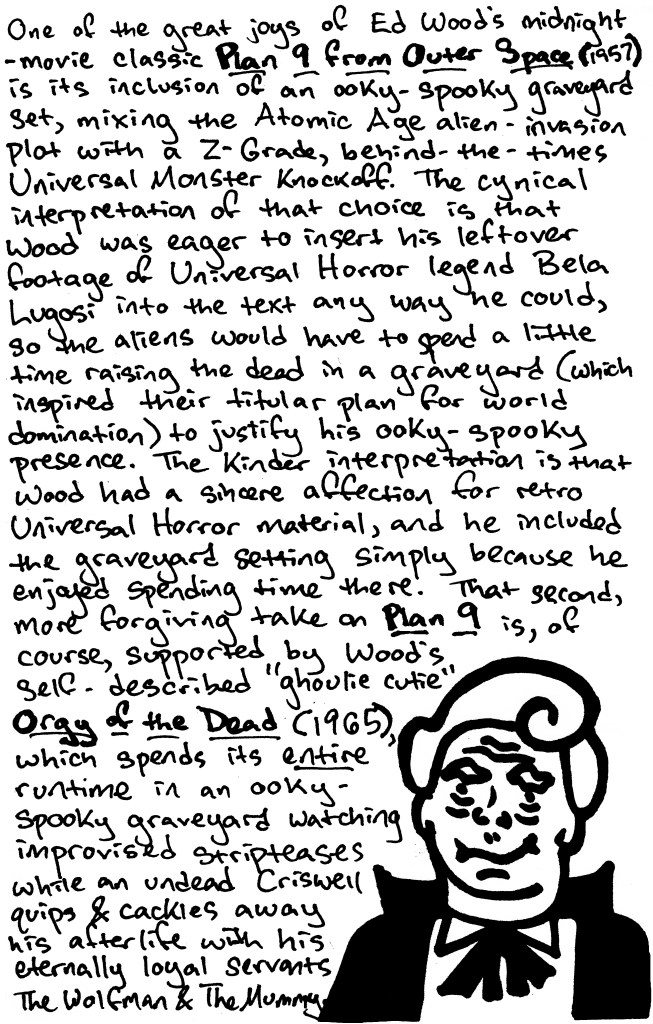 One of the great joys of Ed Wood's midnight
-movie classic Plan 9 from Outer Space (1957)
is its inclusion of an ooky-spooky graveyard
set, mixing the Atomic Age alien-invasion
plot with a Z-Grade, behind-the-times
Universal Monster Knockoff. The cynical
interpretation of that choice is that
Wood was eager to insert his leftover
footage of Universal Horror legend Bela
Lugosi into the text any way he could,
so the aliens would have to spend a little
time raising the dead in a graveyard (which
inspired their titular plan for world
domination) to justify his ooky-spooky
presence. The Kinder interpretation is that
Wood had a sincere affection for retro
Universal Horror material, and he included
the graveyard setting simply because he
enjoyed spending time there. That second,
more forgiving take on Plan 9 is, of
course, supported by Wood's
self-described "ghoulie cutie"
Orgy of the Dead (1965),
which spends its entire
runtime in an ooky-
spooky graveyard watching
improvised stripteases
while an undead Criswell
quips & cackles away
his afterlife with his
eternally loyal servants
The Wolfman & The Mummy.